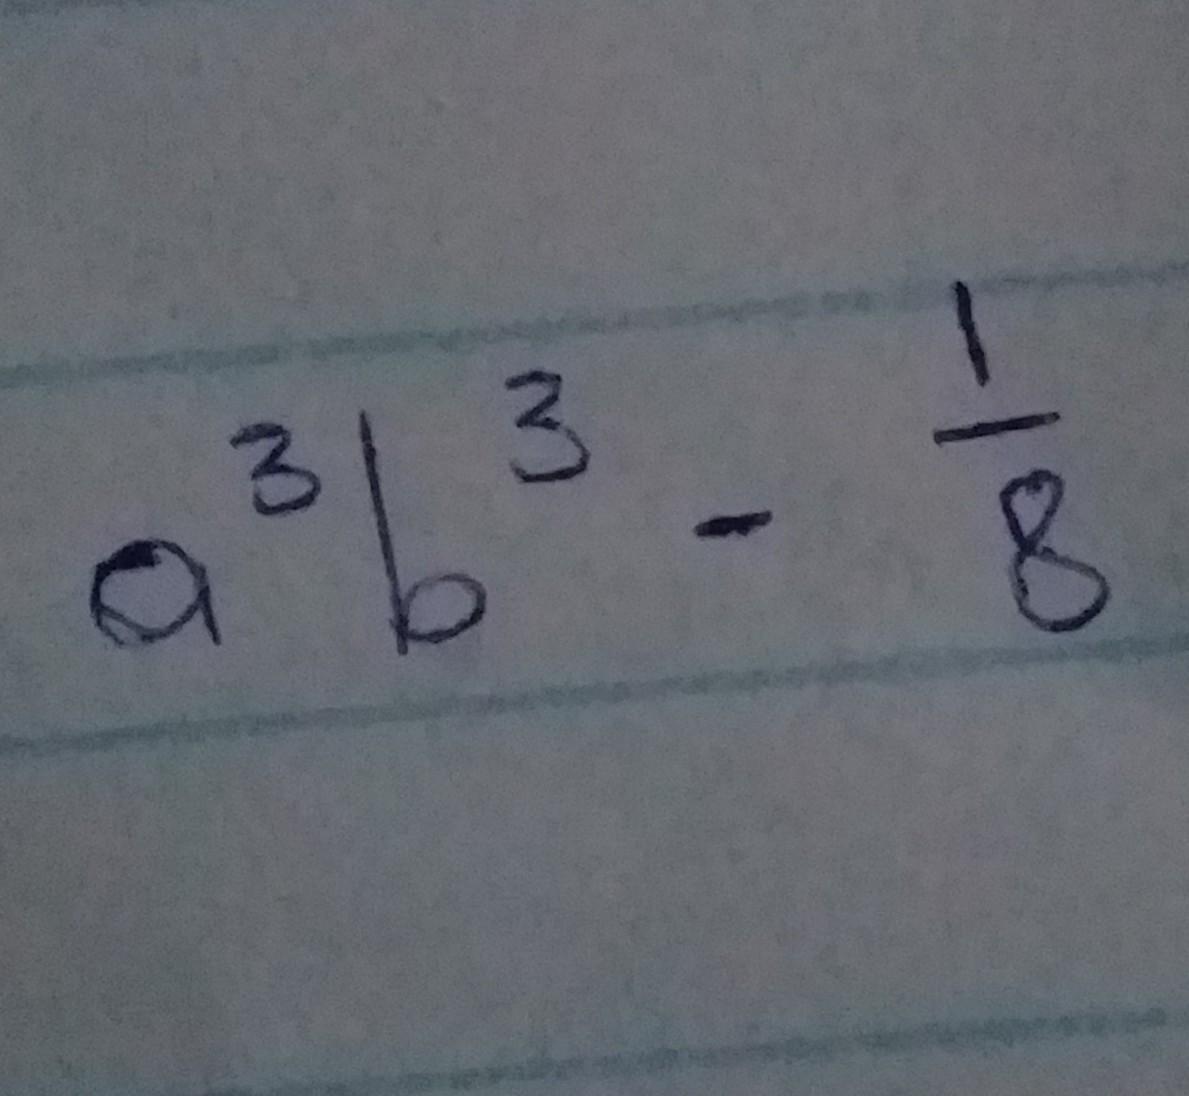 a³b³ - 1/8